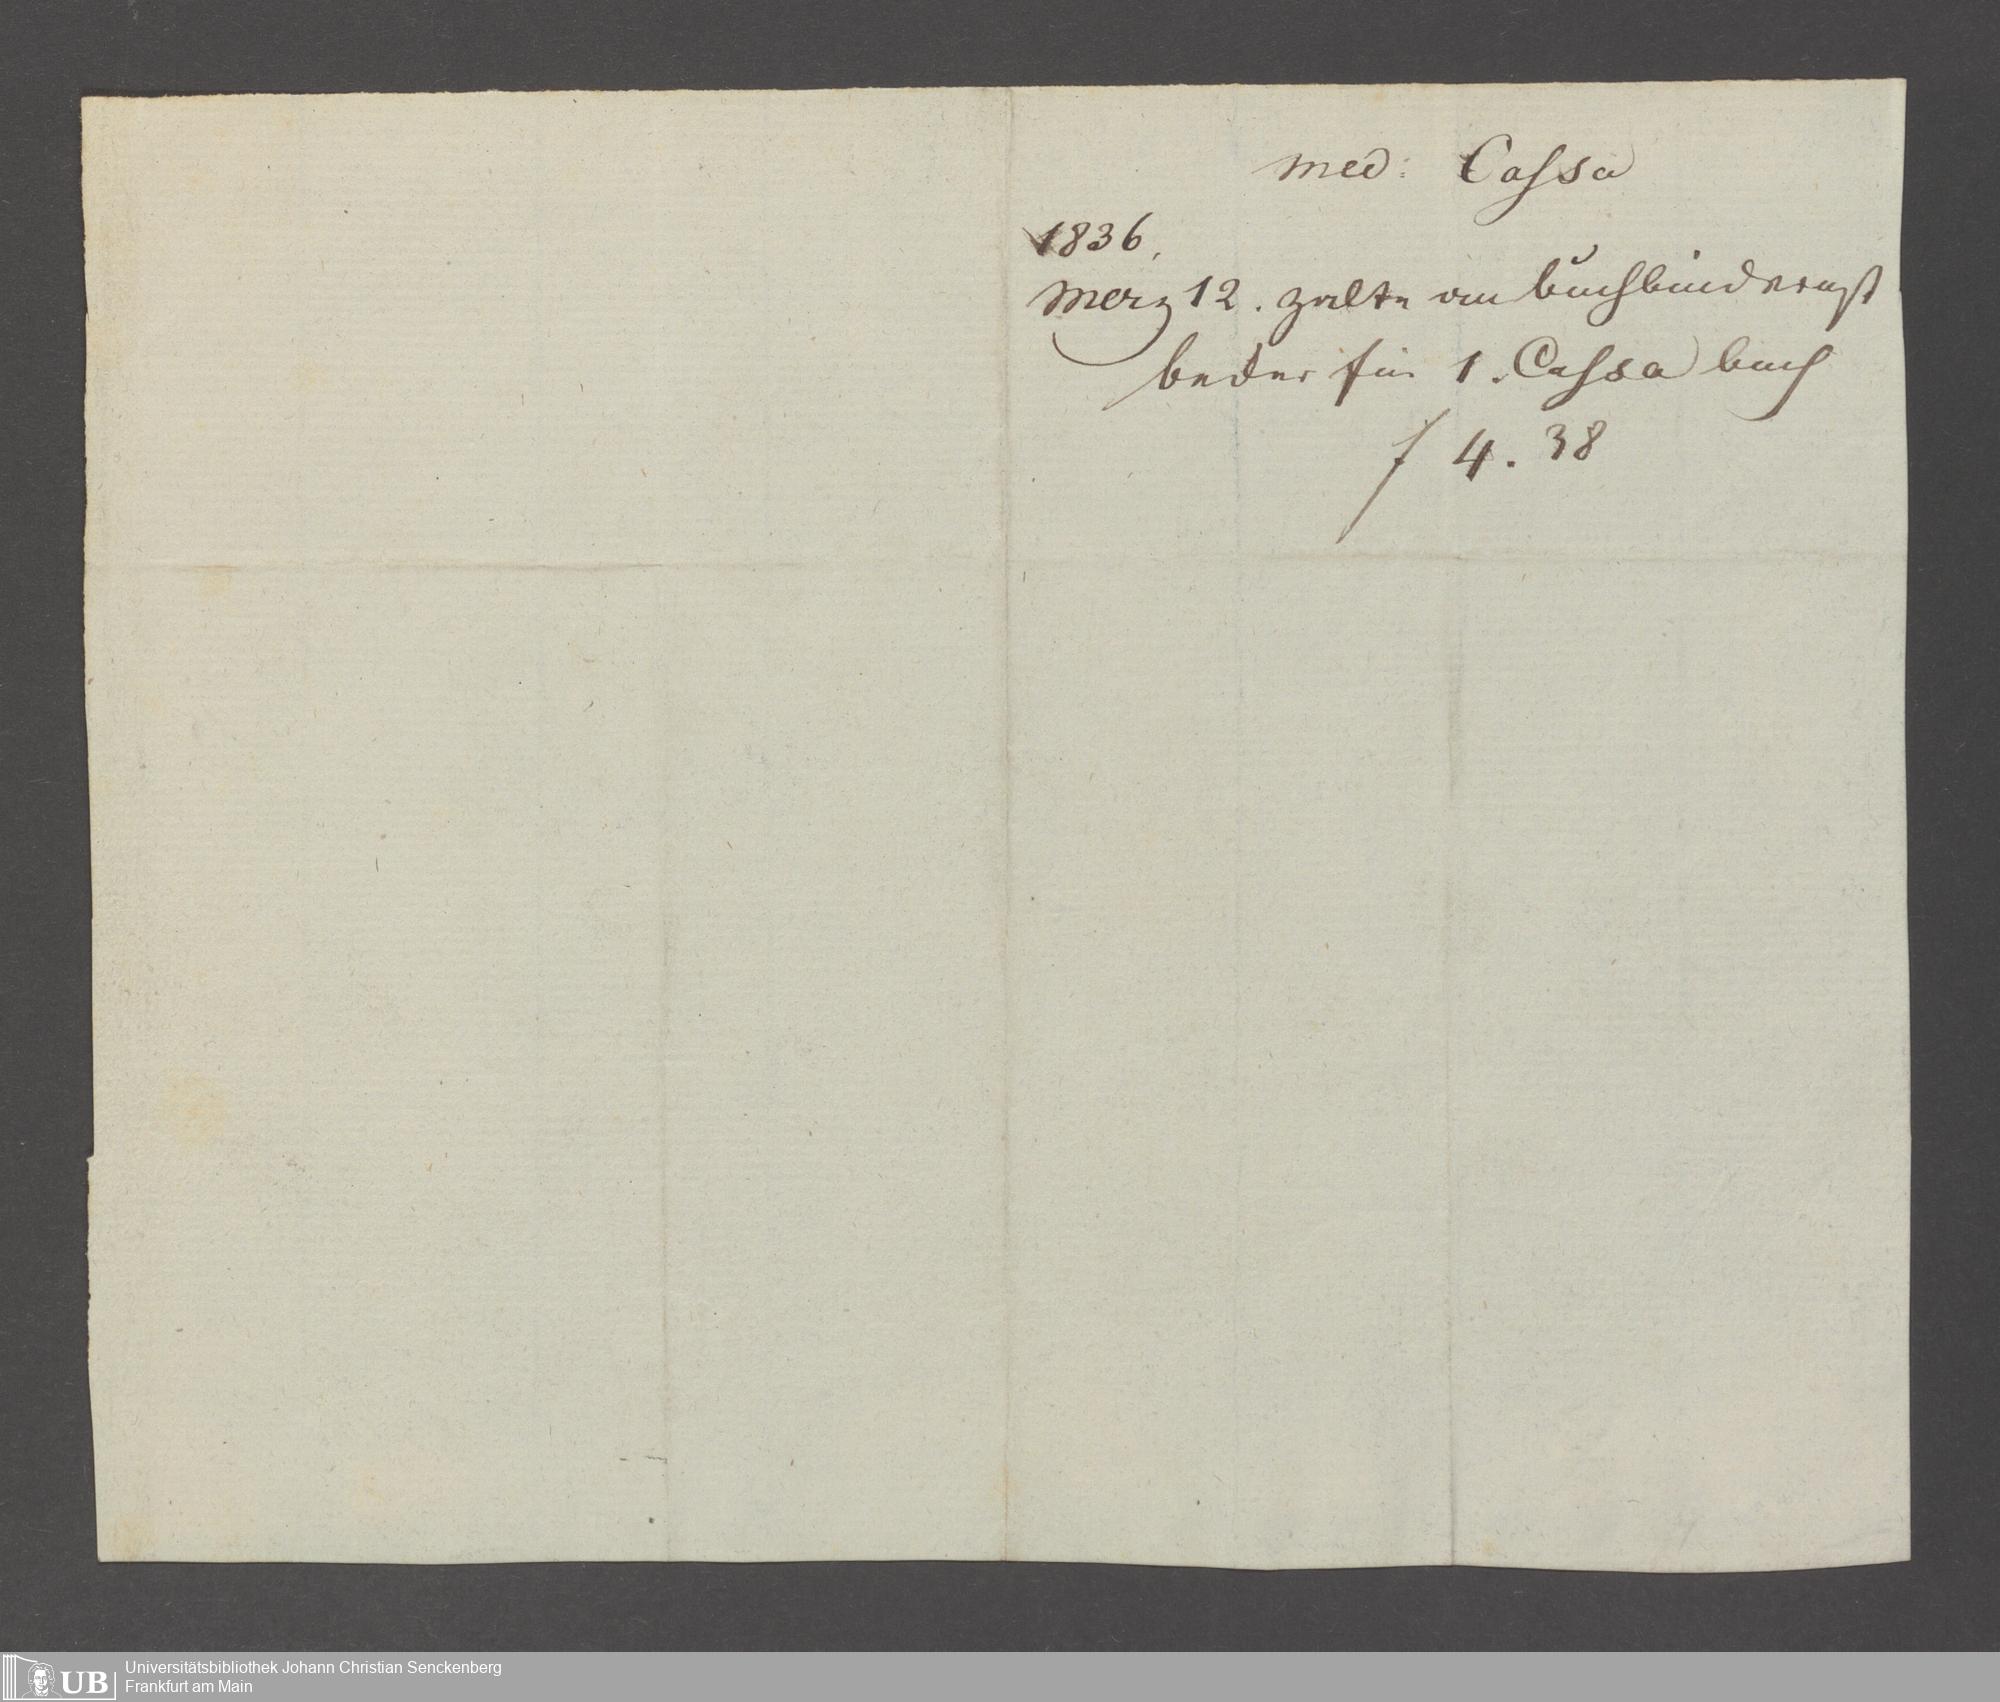 med: Cassa
1836.
Merz 12. zalte an buchbinder
beder für 1. Cassa buch
f 4. 38
UB
Universitätsbibliothek Johann Christian Senckenberg
Frankfurt am Main